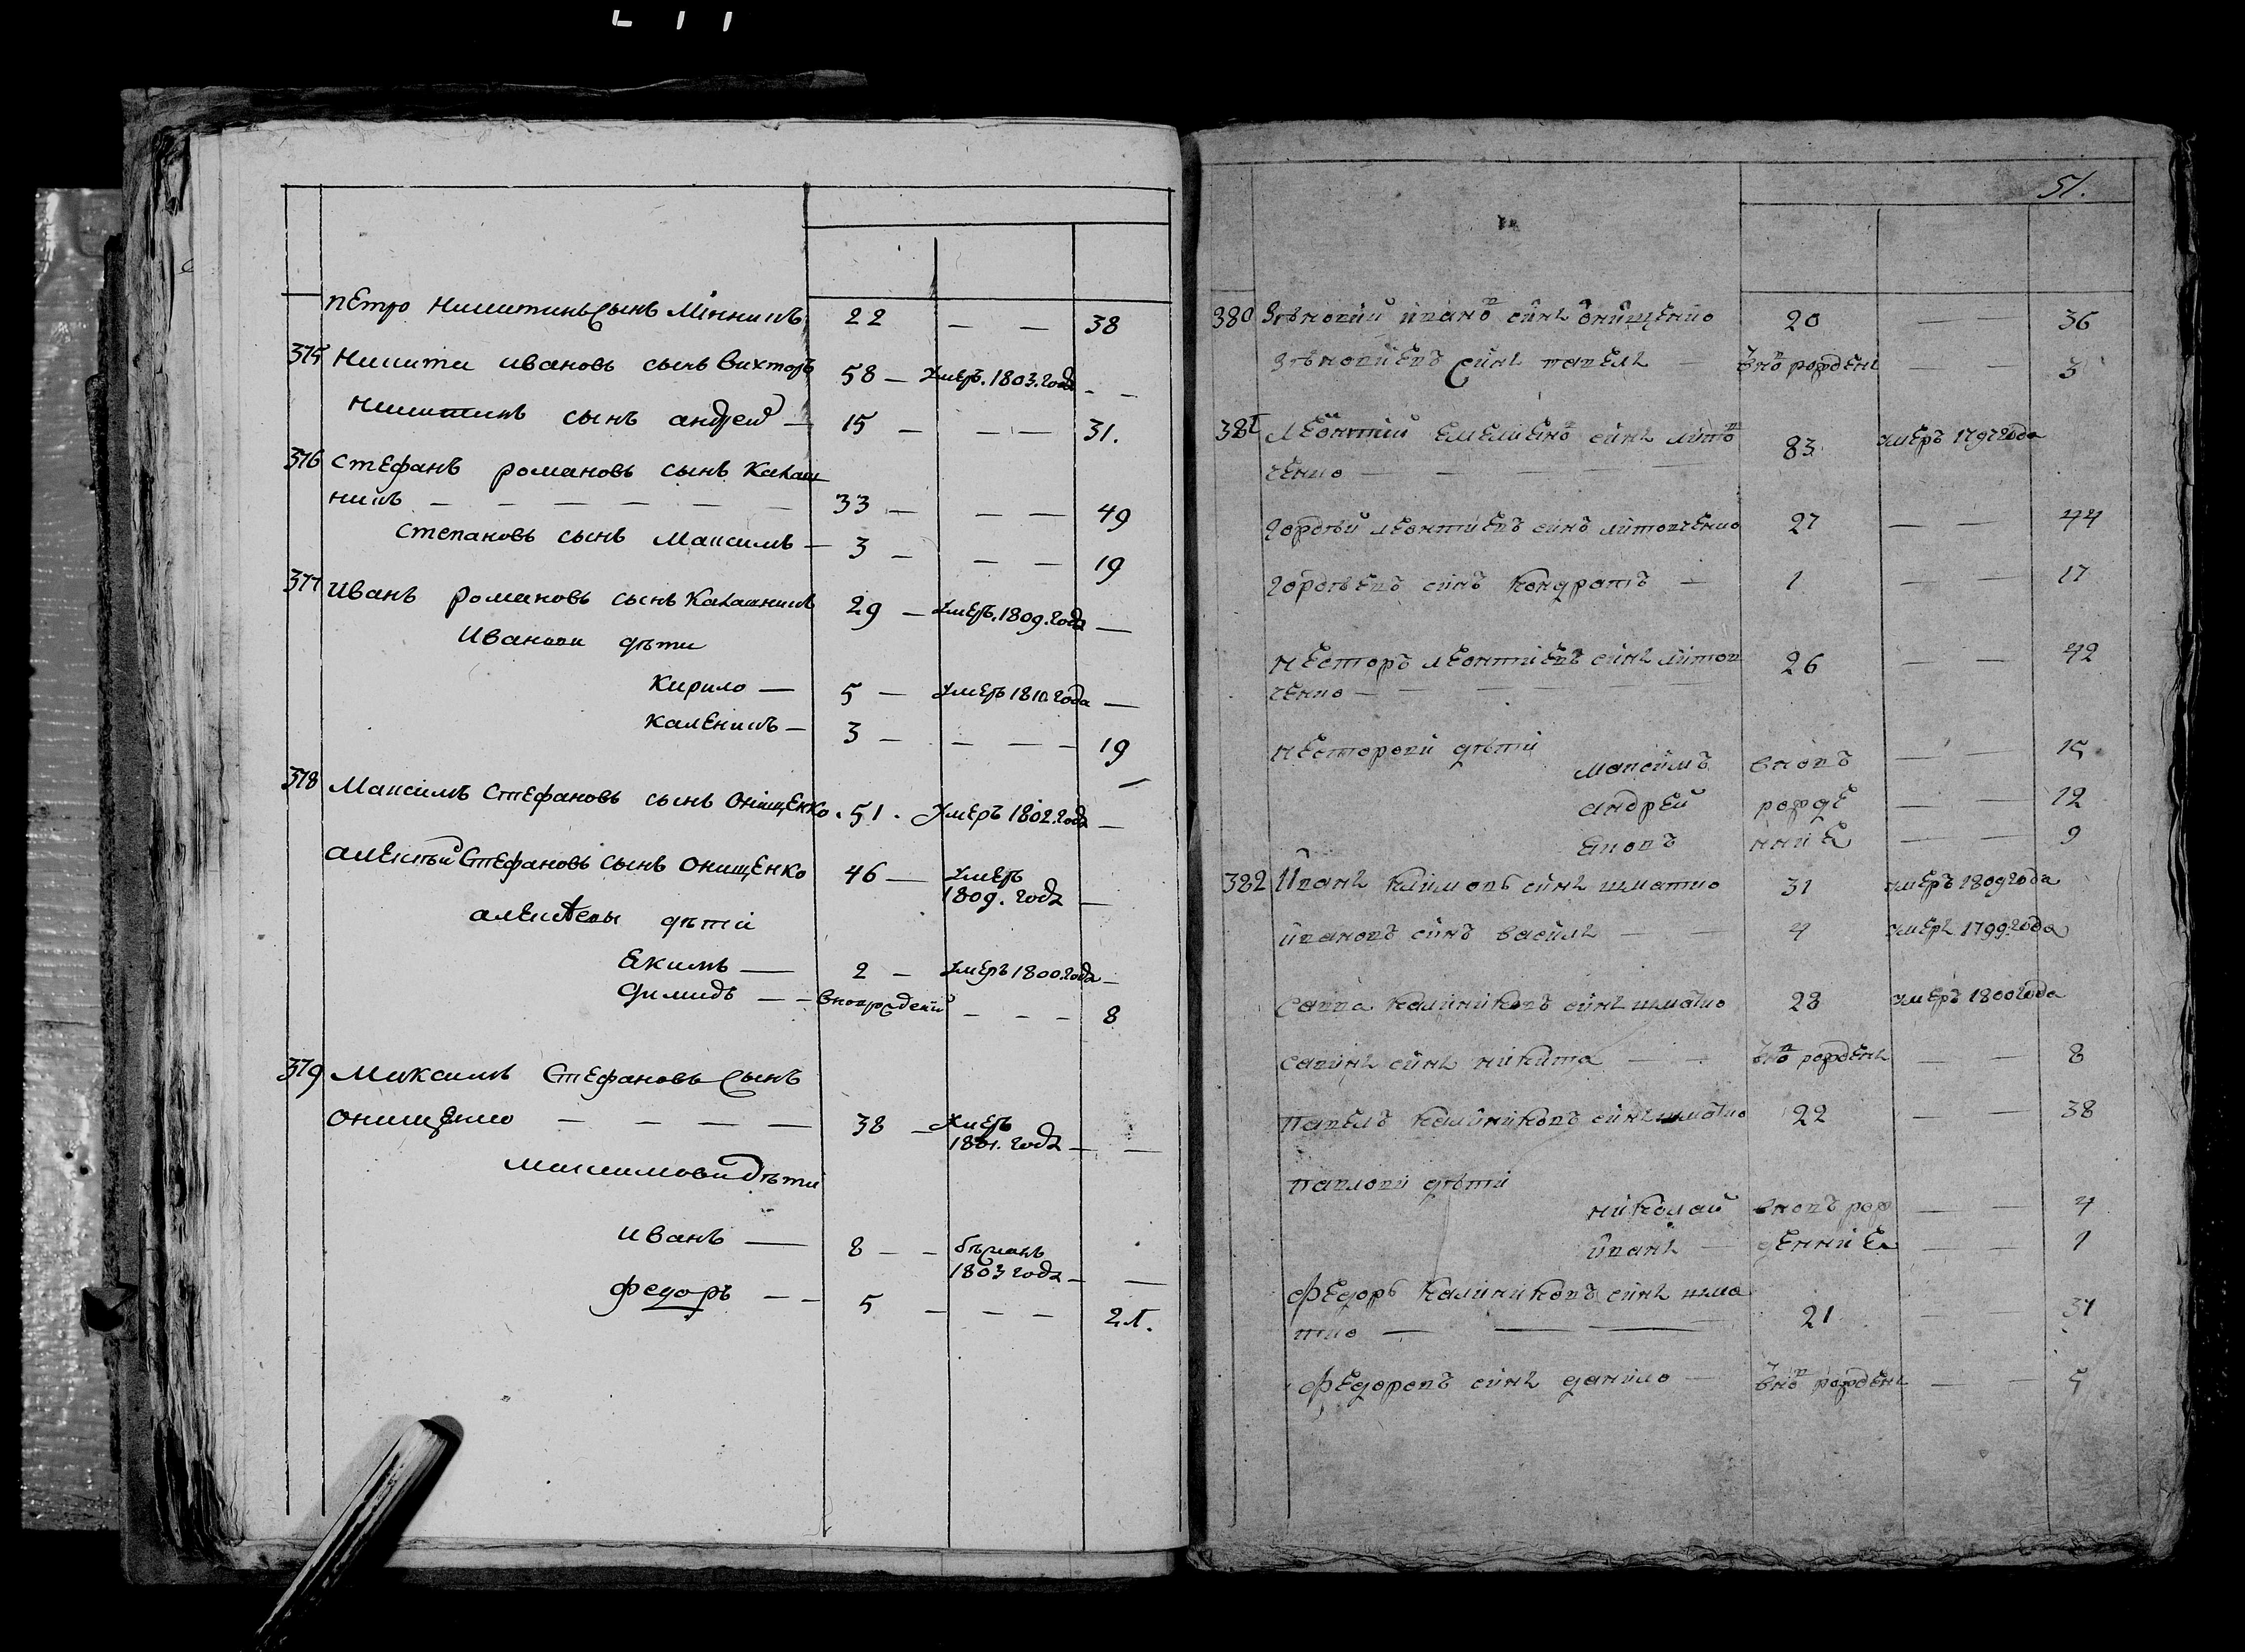 Петро Никитинъ сынъ Миникъ 22 — — 38
375 Никита Ивановъ сынъ Вихторъ 58 — Умеръ. 1803. года — —
Никитинъ сынъ Андрей — 15 — — — 31.
376 Стефанъ Романовъ сынъ Калаш
никъ — — — — — — 33 — — — 49
Степановъ сынъ Максимъ — 3 — — — 19
377 Иванъ Романовъ сынъ Калашникъ 29 — Умеръ. 1809. года —
Иванови дѣти
Кирило — 5 — Умеръ 1810. года —
Каленикъ — 3 — — — — 19
378 Максимъ Стефановъ сынъ Онищенко. 51. Умеръ 1802. года —
Алексѣй Стефановъ сынъ Онищенко 46 — Умеръ
1809. года —
Алексѣевы дѣти
Екимъ — 2 — Умеръ 1800. года —
Димидъ — — вновь рожденій — — — 8
379 Максимъ Стефановъ сынъ
Онищенко — — — — — 38 — Умеръ
1801. года — —
Максимови дѣти
Иванъ — 8 — — бѣжанъ
1803 года — —
Федоръ — — 5 — — — 21.
51.
380 Зѣновий Иванов синъ Онищенко 20 — — 36
Зѣновиевъ синъ Павелъ — внов рожденъ — — 3
381 Леонтий Емелиенов синъ Литов
ченко — — — — 83. умеръ 1797 года
Гордѣй Леонтиевъ синъ Литовченко 27 — — 44
Гордѣевъ синъ Кондратъ — 1 — — 17
Несторъ Леонтиевъ синъ Литов
ченко — — — — 26 — — 42
Несторови дѣти
Максимъ вновъ — — 15
Андрей рожде — — 12
Яковъ нние — — 9
382 Иванъ Климовъ синъ Шматко 31 умеръ 1809 года
Ивановъ синъ Василь — — 4 умеръ 1799. года
Савва Калиниковъ синъ Шматко 28 умеръ 1800 года
Савинъ синъ Никита — — внов рожденъ — — 8
Павелъ Калиниковъ синъ Шматко 22 — — 38
Павлови дѣти
Николай вновъ рож — — 4
Иванъ — денние — — 1
Федоръ Калиниковъ синъ Шма
тко — — — 21 — — 37
Федоровъ синъ Данило — внов рожденъ — — 5